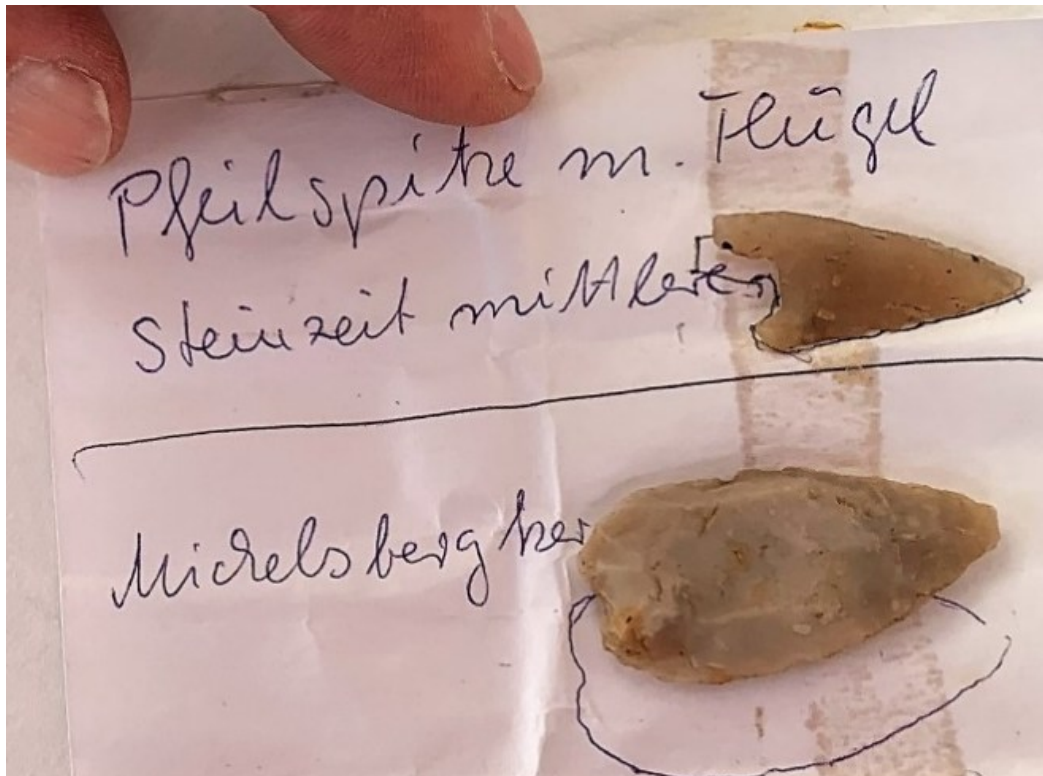 Pfeilspitze m. Flügel
Steinzeit mittlere
Michelsberg